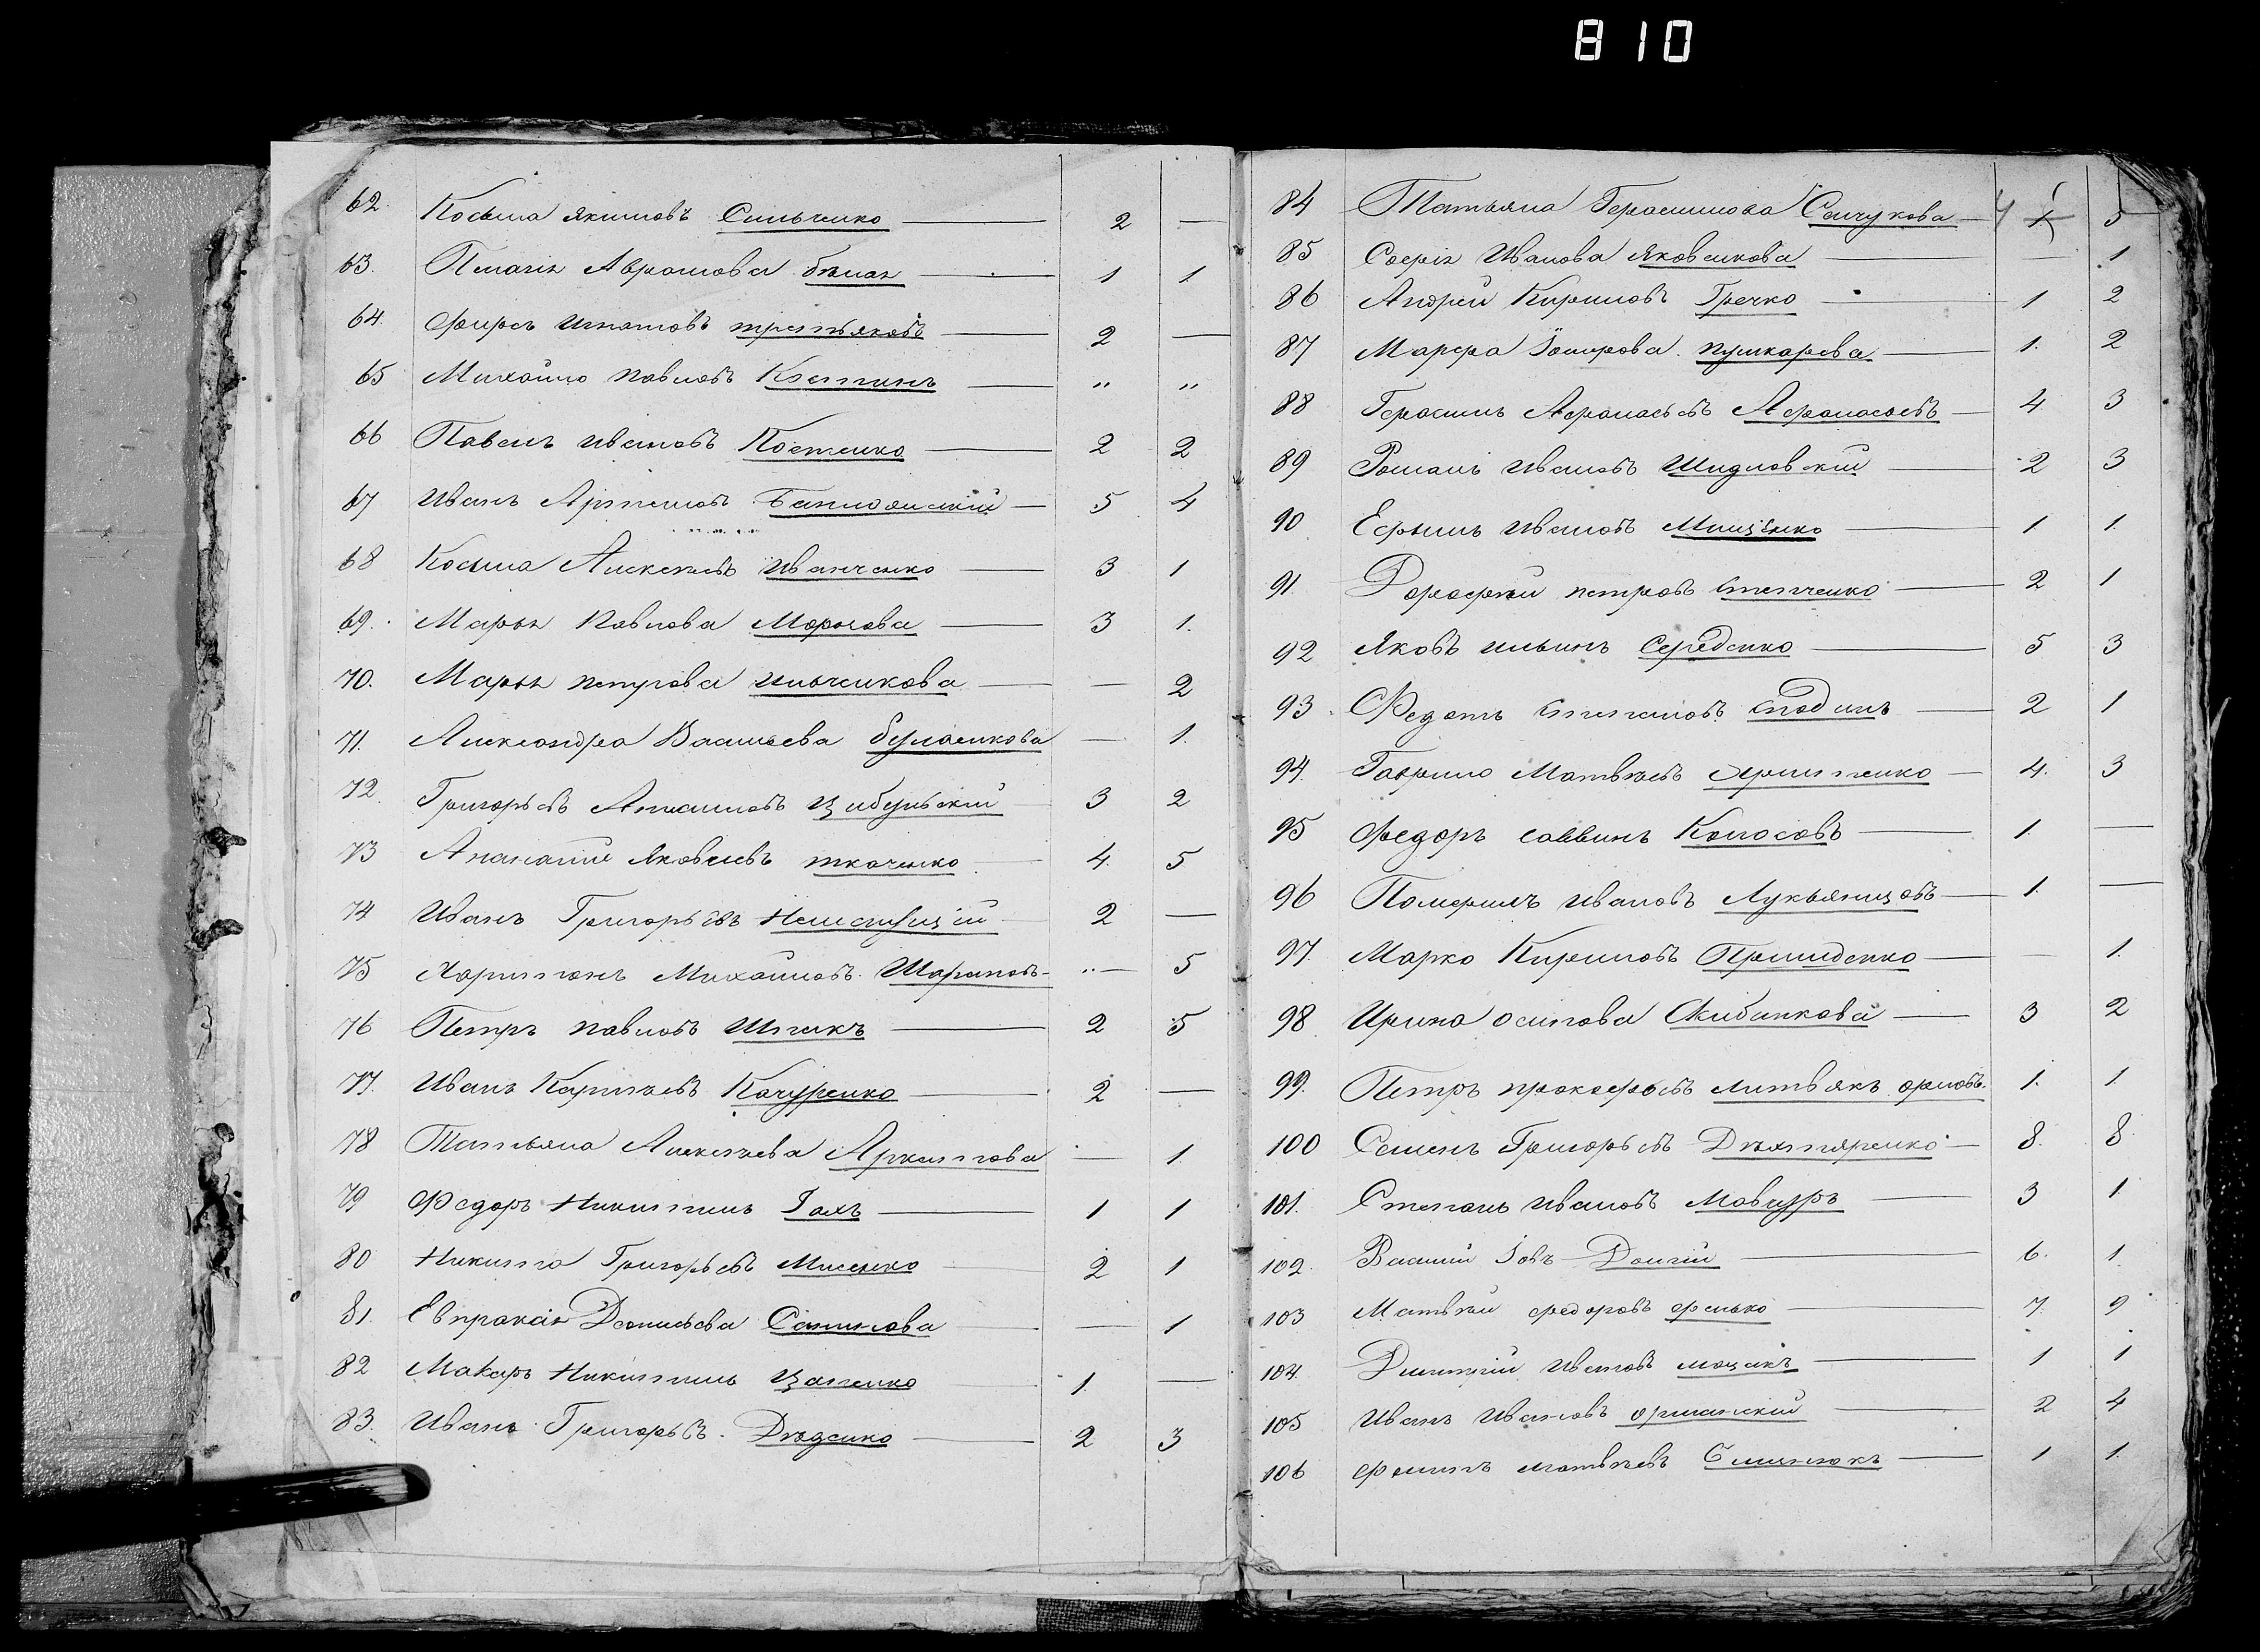 810
62. Косьма Якимовъ Сильченко — 2 —
63. Пелагія Аврамова Бѣлая — 1 1.
64. Фирсъ Игнатовъ Третьяковъ — 2 —
65 Михайло Павловъ Костинъ — „ „
66 Павелъ Ивановъ Костенко — 2 2
67 Иванъ Артемовъ — 5 4
68 Косьма Алексѣевъ Иванченко — 3 1
69. Марья Павлова Морозова — 3 1.
70. Марья Петрова Ильченкова — — 2
71. Александра Васильева Булавикова — 1.
72. Григорьевъ Цибульскій 3 2
73 Ананій Яковлевъ Ткаченко 4. 5
74 Иванъ Григорьевъ 2 —
75 Харитонъ Михайловъ Шараповъ „ — 5
76 Петръ Павловъ Шпакъ — 2 5
77. Иванъ Карпѣевъ Качуренко — 2 —
78 Татьяна Алексѣева Архипова — 1
79 Федоръ Никитинъ Гахъ — 1 1
80 Никита Григорьевъ Мисенко — 2 1
81. Евпраксія Деонисьева — — 1
82 Макаръ Никитинъ Цапенко — 1. —
83. Иванъ Григорьевъ. Дѣденко — 2 3
84 Татьяна Герасимова Сенчукова — 4 5
85 Софія Иванова Яковенкова — 1
86 Андрей Кириловъ Гречко — 1 2
87 Марфа Пушкарева — 1. 2
88 Герасимъ Афанасьевъ Афанасьевъ — 4 3
89 Романъ Ивановъ Шидловскій — 2 3
90 Ефимъ Ивановъ Мищенко — 1 1.
91. Дорофей Петровъ Степченко — 2 1
92 Яковъ Ильинъ Середенко — 5 3
93. Федотъ Степановъ — 2 1
94. Гаврило Матвѣевъ — 4. 3
95 Федоръ Саввинъ Колосовъ — 1. —
96 Памфилъ Ивановъ Лукьянцовъ — 1. —
97. Марко Кириловъ — — 1.
98 Ирина Осипова Скибинкова — 3 2
99. Петръ Прокофьевъ Литвякъ Орловъ. 1. 1.
100 Семенъ Григорьевъ Дѣхтяренко — 8. 8
101. Степанъ Ивановъ Мовчуръ — 3 1.
102. Василій Іовъ Долгій — 6. 1.
103 Матвѣй Федоровъ Фенько — 7. 9
104. Дмитрій Ивановъ — 1 1
105 Иванъ Ивановъ Орланскій — 2 4
106 Филипъ Матвѣевъ — 1 1.